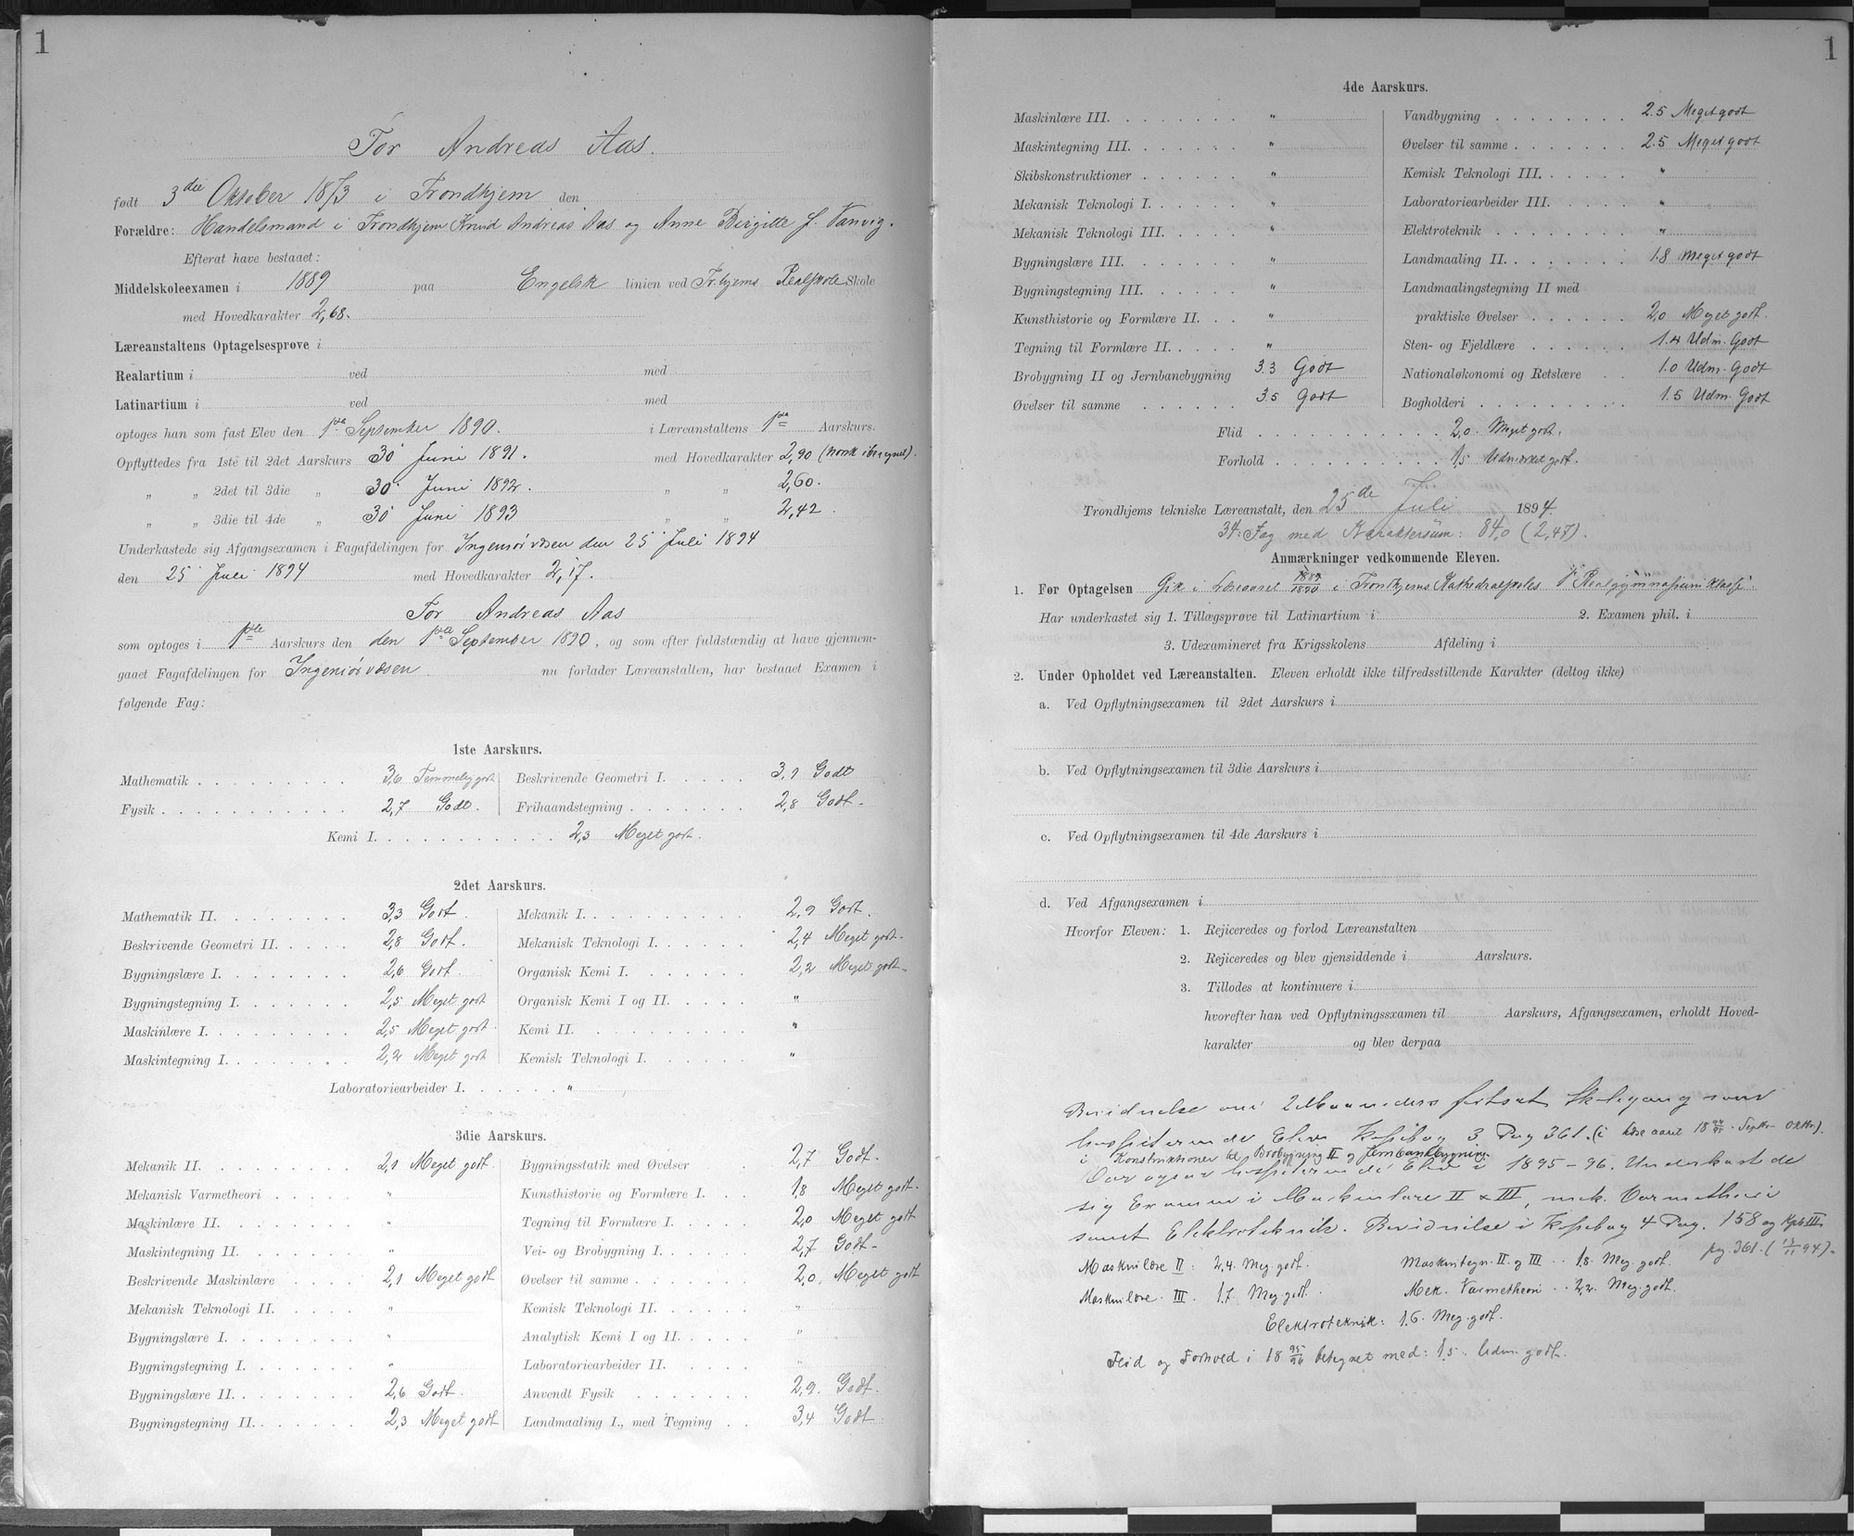 1
Tor Andreas Aas.
født 3die Oktober 1873 i Trondhjem den
Forældre: Handelsmand i Trondhjem Knud Andreas Aas og Anne Birgitte f. Vanvig.
Efterat have bestaaet:
Middelskoleexamen i 1889 paa Engelsk linien ved Tr.hjems Realskole Skole
med Hovedkarakter 2,68.
Læreanstaltens Optagelsesprøve i
Realartium i ved med
Latinartium i ved med
optoges han som fast Elev den 1ste September 1890. i Læreanstaltens 1ste Aarskurs.
Opflyttedes fra 1ste til 2det Aarskurs 30 Juni 1891. med Hovedkarakter 2,90 (norsk iberegnet).
" " 2det til 3die " 30 Juni 1892. " " 2,60.
" " 3die til 4de " 30 Juni 1893 " " 2,42.
Underkastede sig Afgangsexamen i Fagafdelingen for Ingeniørvæsen den 25 Juli 1894
den 25 Juli 1894 med Hovedkarakter 2,17.
Tor Andreas Aas
som optoges i 1ste Aarskurs den den 1ste September 1890, og som efter fuldstændig at have gjennem-
gaaet Fagafdelingen for Ingeniørvæsen nu forlader Læreanstalten, har bestaaet Examen i
følgende Fag:
1ste Aarskurs.
Mathematik 3,6 Temmelig godt Beskrivende Geometri I. 3,1 Godt
Fysik 2,7 Godt. Frihaandstegning 2,8 Godt.
Kemi I. 2,3 Meget godt.
2det Aarskurs.
Mathematik II. 3,3 Godt. Mekanik I. 2,9 Godt.
Beskrivende Geometri II. 2,8 Godt. Mekanisk Teknologi I. 2,4 Meget godt.
Bygningslære I. 2,6 Godt. Organisk Kemi I. 2,2 Meget godt.
Bygningstegning I. 2,5 Meget godt Organisk Kemi I og II. "
Maskinlære I. 2,5 Meget godt. Kemi II. "
Maskintegning I. 2,2 Meget godt Kemisk Teknologi I. "
Laboratoriearbeider I. "
3die Aarskurs.
Mekanik II. 2,1 Meget godt. Bygningsstatik med Øvelser 2,7 Godt.
Mekanisk Varmetheori " Kunsthistorie og Formlære I. 1,8 Meget godt.
Maskinlære II. " Tegning til Formlære I. 2,0 Meget godt
Maskintegning II. " Vei- og Brobygning I. 2,7 Godt.
Beskrivende Maskinlære 2,1 Meget godt Øvelser til samme 2,0. Meget godt
Mekanisk Teknologi II. " Kemisk Teknologi II. "
Bygningslære I. " Analytisk Kemi I og II. "
Bygningstegning I. " Laboratoriearbeider II. "
Bygningslære II. 2,6 Godt. Anvendt Fysik 2,9. Godt.
Bygningstegning II. 2,3 Meget godt Landmaaling I., med Tegning 3,4 Godt
1
4de Aarskurs.
Maskinlære III. " Vandbygning 2.5 Meget godt
Maskintegning III. " Øvelser til samme 2.5 Meget godt
Skibskonstruktioner " Kemisk Teknologi III. "
Mekanisk Teknologi I. " Laboratoriearbeider III. "
Mekanisk Teknologi III. " Elektroteknik "
Bygningslære III. " Landmaaling II. 1.8 Meget godt
Bygningstegning III. " Landmaalingstegning II med
Kunsthistorie og Formlære II. " praktiske Øvelser 2,0 Meget godt.
Tegning til Formlære II. " Sten- og Fjeldlære 1.4 Udm. Godt
Brobygning II og Jernbanebygning 3.3 Godt Nationaløkonomi og Retslære 1.0 Udm. Godt
Øvelser til samme 3.5 Godt Bogholderi 1.5 Udm. Godt
Flid 2,0. Meget godt.
Forhold 1,5 Udmærket godt.
Trondhjems tekniske Læreanstalt, den 25de Juli 1894.
34 Fag med Karaktersum: 84,0 (2,47).
Anmærkninger vedkommende Eleven.
1. Før Optagelsen Gik i Læreaaret 1889/1890 i Trondhjems Kathedralskoles 1ste Realgymnasiumklasse.
Har underkastet sig 1. Tillægsprøve til Latinartium i 2. Examen phil. i
3. Udexamineret fra Krigsskolens Afdeling i
2. Under Opholdet ved Læreanstalten. Eleven erholdt ikke tilfredsstillende Karakter (deltog ikke)
a. Ved Opflytningsexamen til 2det Aarskurs i
b. Ved Opflytningsexamen til 3die Aarskurs i
c. Ved Opflytningsexamen til 4de Aarskurs i
d. Ved Afgangsexamen i
Hvorfor Eleven: 1. Rejiceredes og forlod Læreanstalten
2. Rejiceredes og blev gjensiddende i Aarskurs.
3. Tillodes at kontinuere i
hvorefter han ved Opflytningssxamen til Aarskurs, Afgangsexamen, erholdt Hoved-
karakter og blev derpaa
Bevidnelse om 2 Maaneders fortsat Skolegang som
hospiterende Elev Kopibog 3. Pag 361. (i Læreaaret 1894/95 - Septbr. Oktbr.).
i Konstruktioner til Brobygning II og Jernbanebygning.
Var ogsaa hospiterende Elev i 1895-96. Underkastede
sig Examen i Maskinlære II & III, mek. Varmetheori
samt Elektroteknik. Bevidnelse i Kopibog 4 Pag. 158 og Kpb III
pag. 361. (13/11 94).
Maskinlære II: 2,4. Meg. godt. Maskintegn. II og III .. 1,8. Meg. godt.
Maskinlære III. 1,7 Meg. godt. Mek. Varmetheori .. 2,2. Meg. godt.
Elektroteknik: 1.6. Meg. godt.
Flid og Forhold i 1895/96 betegnet med: 1,5. Udm. godt.